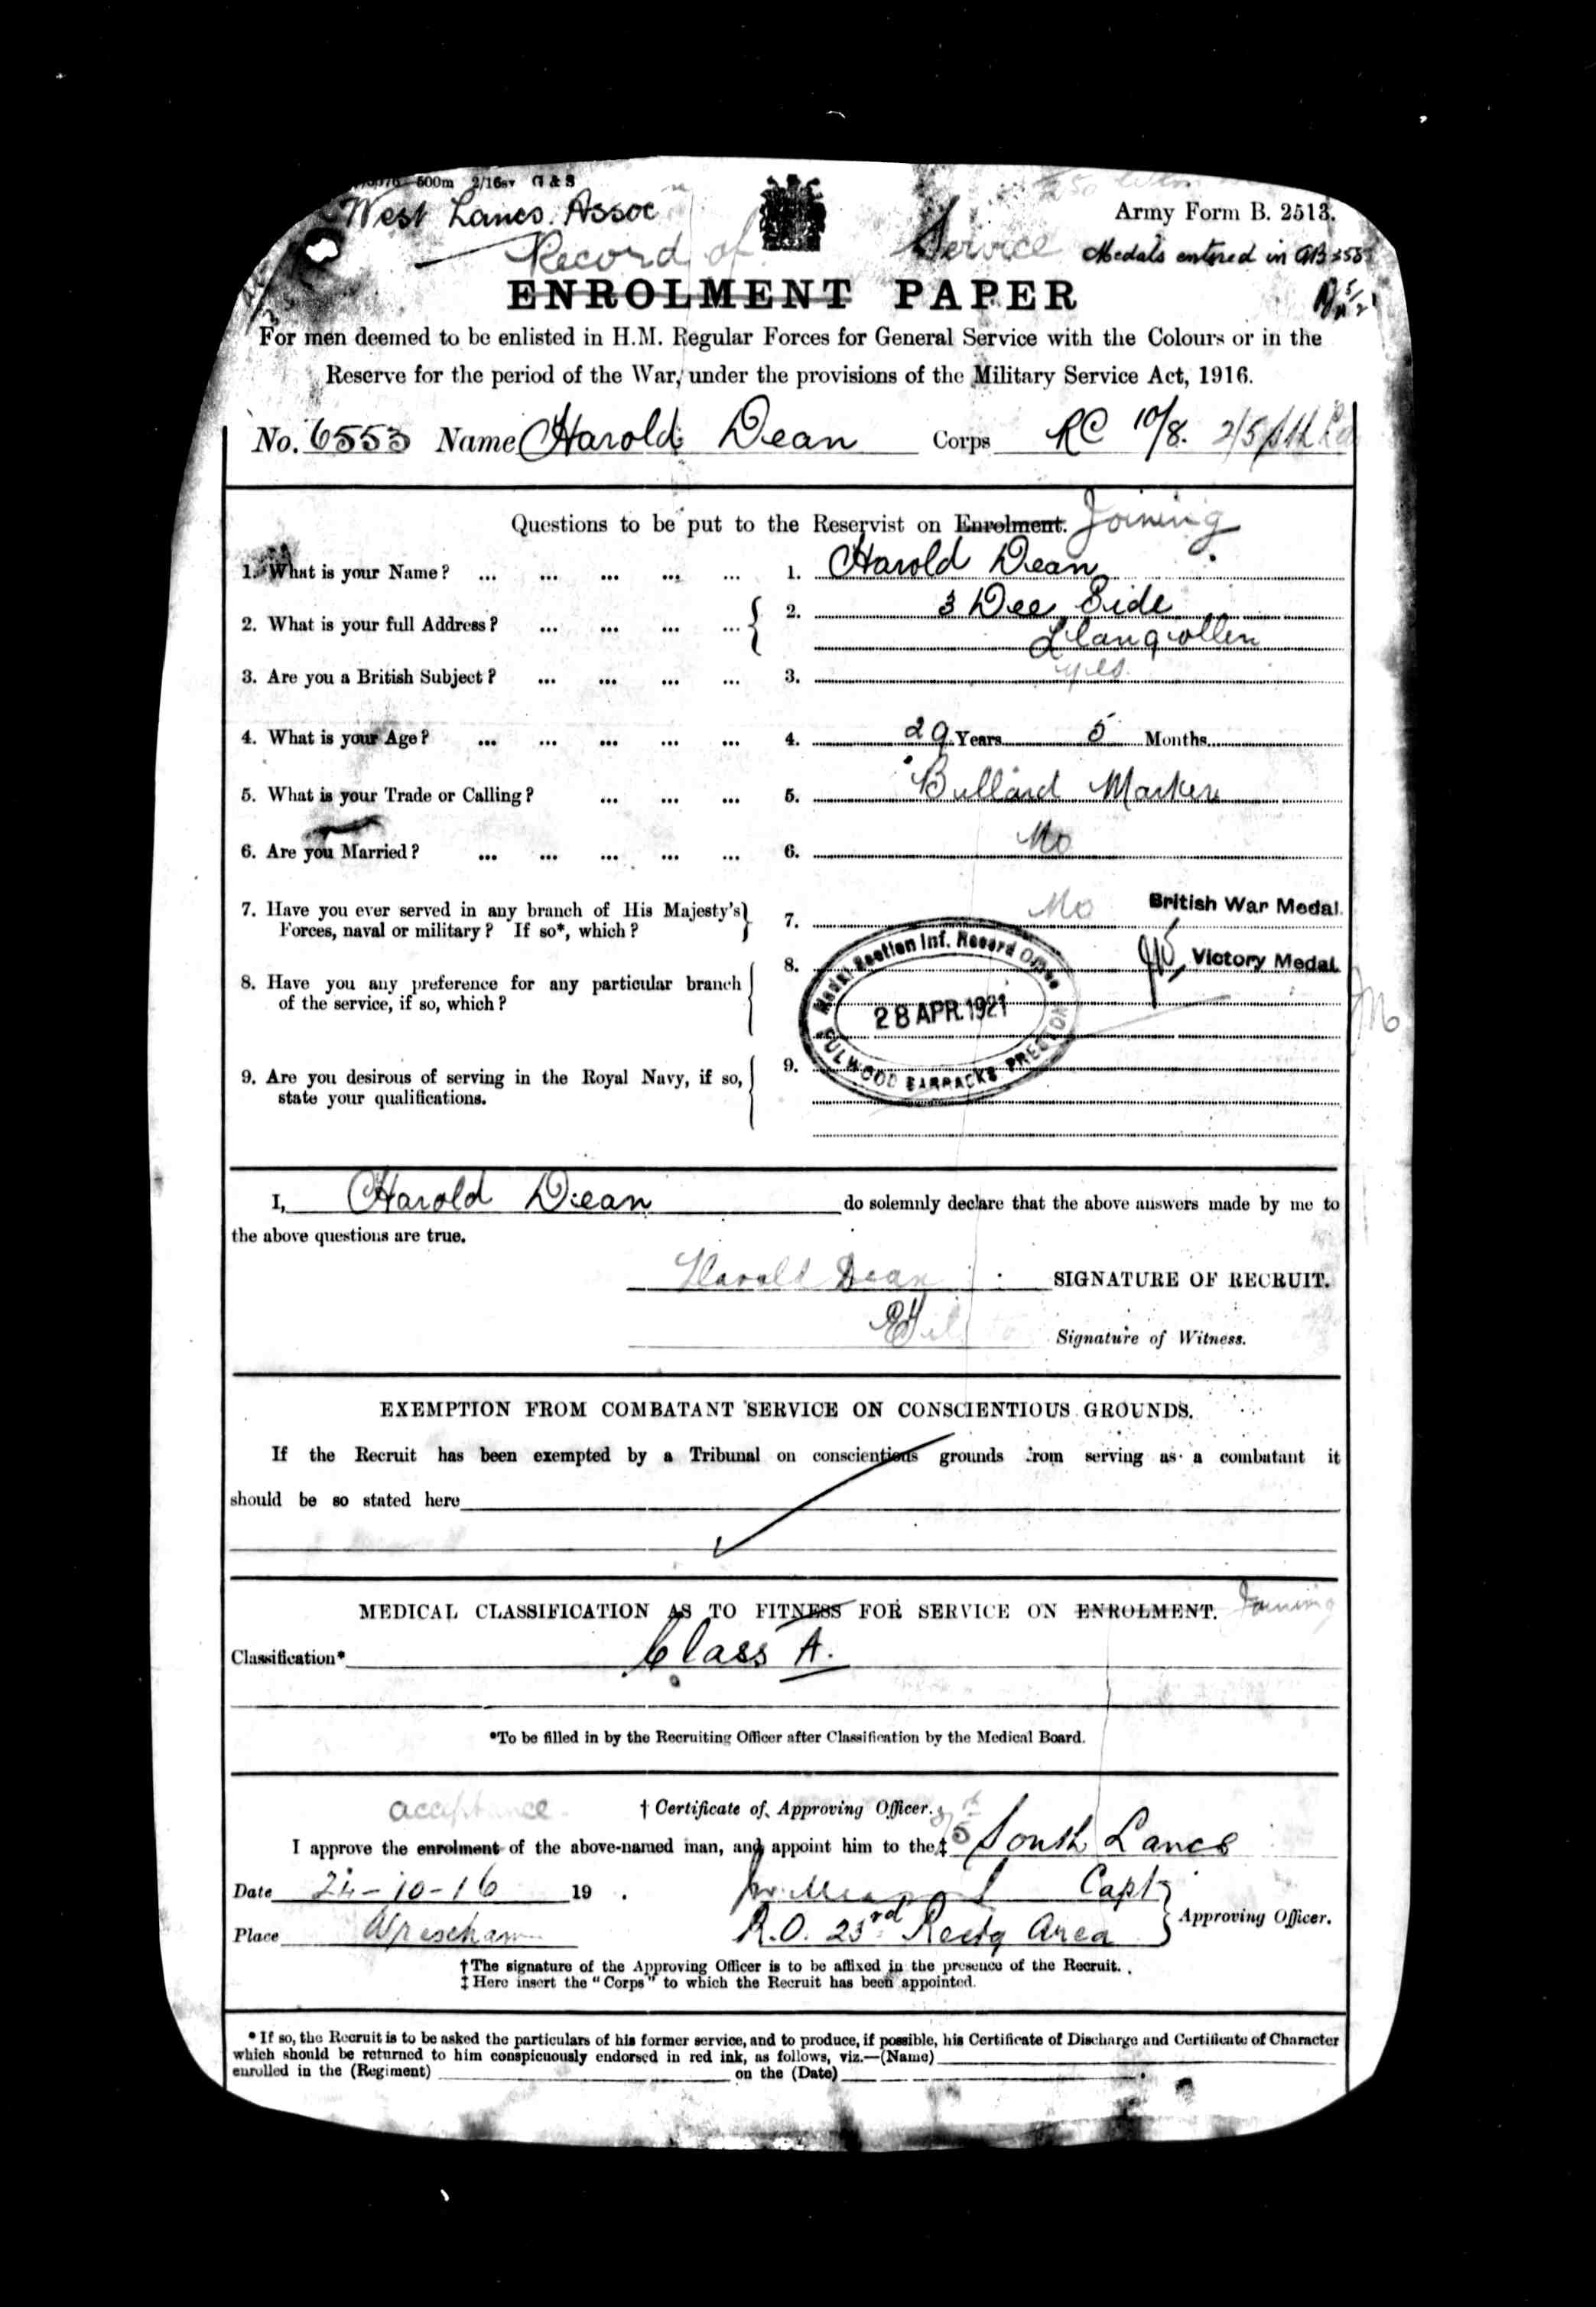 600m 2/16sv G & S
West Lancs. Assoc
Army Form B. 2513.
Record of Service
Medals entered in
ENROLMENT PAPER
For men deemed to be enlisted in H.M. Regular Forces for General Service with the Colours or in the
Reserve for the period of the War, under the provisions of the Military Service Act, 1916.
No. 6553 Name Harold Dean Corps RC 10/8. 2/5
Questions to be put to the Reservist on Enrolment. Joining
1. What is your Name? ... ... ... ... ... 1. Harold Dean
2. What is your full Address? ... ... ... ... 2. 3 Dee Side
Llangollen
3. Are you a British Subject? ... ... ... ... 3. yes.
4. What is your Age? ... ... ... ... ... 4. 29 Years 5 Months
5. What is your Trade or Calling? ... ... ... 5. Bullard Marker
6. Are you Married? ... ... ... ... ... 6. No
7. Have you ever served in any branch of His Majesty's 7. No British War Medal.
Forces, naval or military? If so*, which?
8. Victory Medal.
8. Have you any preference for any particular branch
of the service, if so, which?
Medal Section Inf. Record Office
28 APR. 1921
FULWOOD BARRACKS PRESTON
9. Are you desirous of serving in the Royal Navy, if so, 9.
state your qualifications.
I, Harold Dean do solemnly declare that the above answers made by me to
the above questions are true.
Harold Dean SIGNATURE OF RECRUIT.
Signature of Witness.
EXEMPTION FROM COMBATANT SERVICE ON CONSCIENTIOUS GROUNDS.
If the Recruit has been exempted by a Tribunal on conscientious grounds from serving as a combatant it
should be so stated here
MEDICAL CLASSIFICATION AS TO FITNESS FOR SERVICE ON ENROLMENT. Joining
Classification* Class A.
*To be filled in by the Recruiting Officer after Classification by the Medical Board.
acceptance † Certificate of Approving Officer.
I approve the enrolment of the above-named man, and appoint him to the‡ South Lancs
Date 24-10-16 19 . Capt
Place Wrexham R.O. 23rd Rectg Area Approving Officer.
†The signature of the Approving Officer is to be affixed in the presence of the Recruit.
‡Here insert the "Corps" to which the Recruit has been appointed.
* If so, the Recruit is to be asked the particulars of his former service, and to produce, if possible, his Certificate of Discharge and Certificate of Character
which should be returned to him conspicuously endorsed in red ink, as follows, viz.—(Name)
enrolled in the (Regiment) on the (Date)